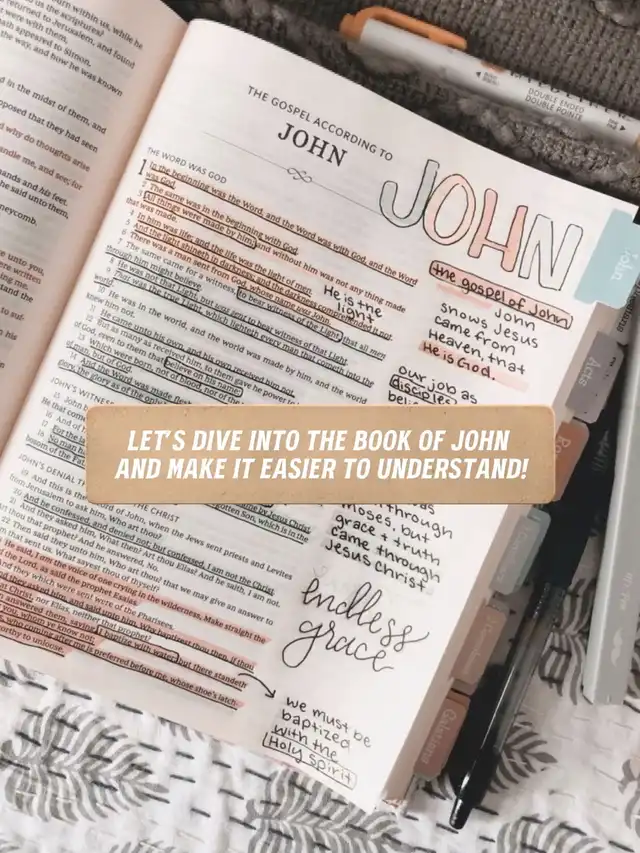 urn within us, while he
us the scriptures?
returned to Jerusalem, and found
were with them,
hath appeared to Simon.
the way, and how he was known
d in the midst of them, and
pposed that they had seen
d why do thoughts arise
andle me, and see; for
hands and his feet.
he said unto them,
neycomb.
THE GOSPEL ACCORDING TO
JOHN
JOHN
THE WORD WAS GOD
1 In the beginning was the Word, and the Word was with God, and the Word
was God.
2 The same was in the beginning with God.
3 All things were made by him; and without him was not any thing made
that was made.
4 In him was life; and the life was the light of men.
5 And the light shineth in darkness; and the darkness comprehended it not.
6 There was a man sent from God, whose name was John.
7 The same came for a witness, to bear witness of the Light, that all men
through him might believe.
8 He was not that Light, but was sent to bear witness of that Light.
9 That was the true Light, which lighteth every man that cometh into the
world.
10 He was in the world, and the world was made by him, and the world
knew him not.
11 He came unto his own, and his own received him not.
12 But as many as received him, to them gave he power
of God, even to them that believe on his name:
13 Which were born, not of blood, nor of the
of man, but of God.
14 And the Word was made flesh
glory, the glory as of the only
He is the
light
the gospel of John
shows Jesus
John
came from
Heaven, that
He is God.
our job as
disciples
LET'S DIVE INTO THE BOOK OF JOHN
AND MAKE IT EASIER TO UNDERSTAND!
JOHN'S WITNESS
15 John
16
17 For the
18 No man
bosom of the
came by Jesus Christ.
gotten Son, which is in the
JOHN'S DENIAL
THE CHRIST
19 And this is the record of John, when the Jews sent priests and Levites
from Jerusalem to ask him, Who art thou?
20 And he confessed, and denied not; but confessed, I am not the Christ.
21 And they asked him, What then? Art thou Elias? And he saith, I am not.
Art thou that prophet? And he answered, No.
22 Then said they unto him, Who art thou? that we may give an answer to
that sent us. What sayest thou of thyself?
He said, I am the voice of one crying in the wilderness, Make straight the
of the Lord, as said the prophet Esaias.
which were sent were of the Pharisees.
they asked him, and said unto him, Why baptizest thou then, if thou
Christ, nor Elias, neither that prophet?
answered them, saying, I baptize with water: but there standeth
you, whom ye know not;
who coming after me is preferred before me, whose shoe's latch
worthy to unloose.
through
Moses. but
grace + truth
came through
Jesus Christ
endless
grace
we must be
baptized
with the
Holy Spirit
DOUBLE ENDED
DOUBLE POINTE
John
Acts
Galatians